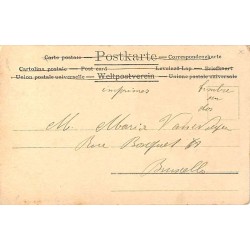 Carte postale Postkarte Correspondenzkarte
Cartolina postale Post card Levelező-Lap Brefkort
Union postale universelle Weltpostverein Union postale universelle
imprimés
timbre
au
dos
M. Maria
Rue Bosquet 61
Bruxelles